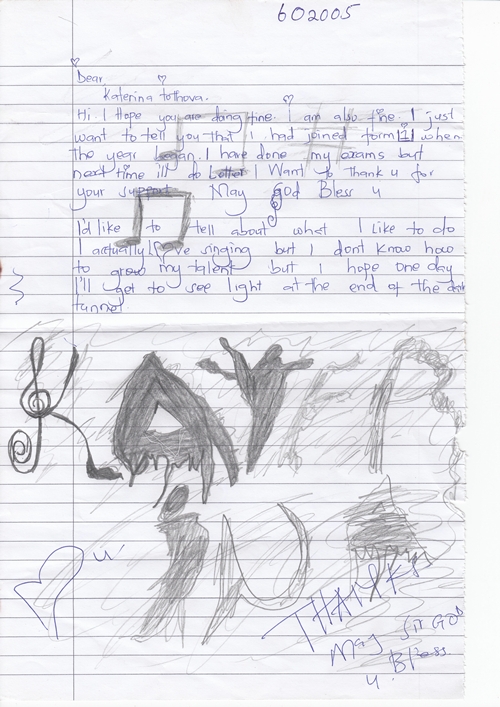 602005
Dear
Katerina tothova.
Hi. I Hope you are doing fine. I am also fine. I just
want to tell you that I had joined form 1 when
The year began. I have done my exams but
next time i'll do better I Want to Thank u for
your support May God Bless u
I'd like to tell about what I Like to do
I actually love singing but I dont know how
to grow my talent but I hope one day
I'll get to see light at the end of the dark
tunnel.
u
THANKS
May GOD
Bless
u.